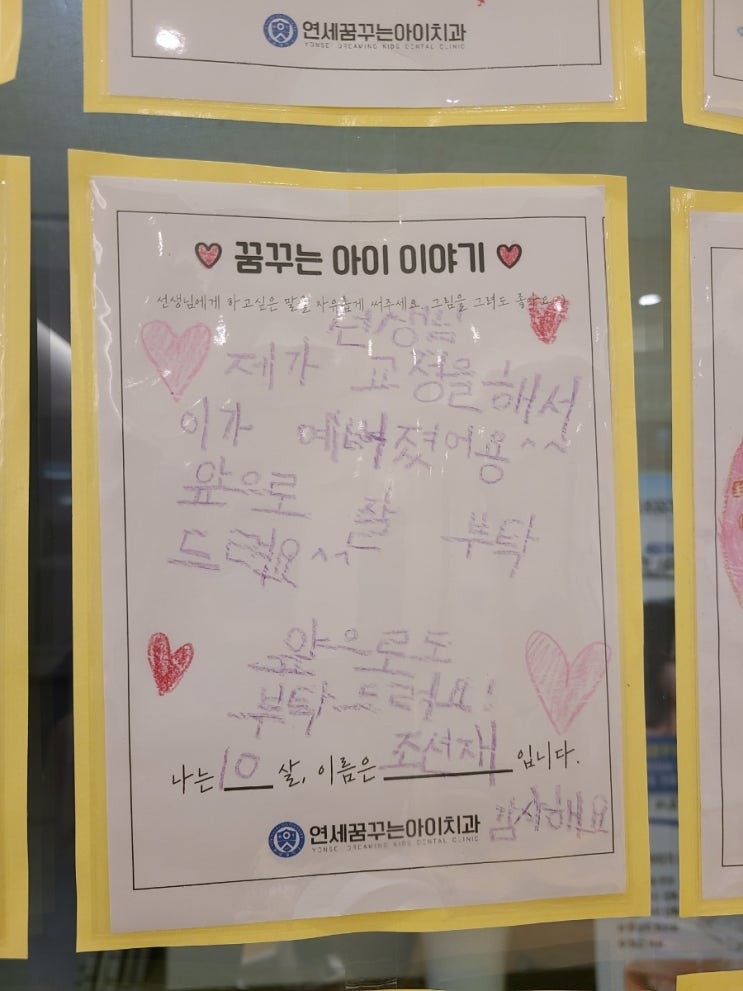 연세꿈꾸는아이치과
YONSEI DREAMING KIDS DENTAL CLINIC
꿈꾸는 아이 이야기
선생님에게 하고싶은 말을 자유롭게 써주세요. 그림을 그려도 좋아요
선생님
제가 교정을해서
이가 예뻐졌어용^^
앞으로 부탁
드려요^^
앞으로도
부탁드려요!
나는 10 살, 이름은 조선재 입니다.
감사해요
연세꿈꾸는아이치과
YONSEI DREAMING KIDS DENTAL CLINIC